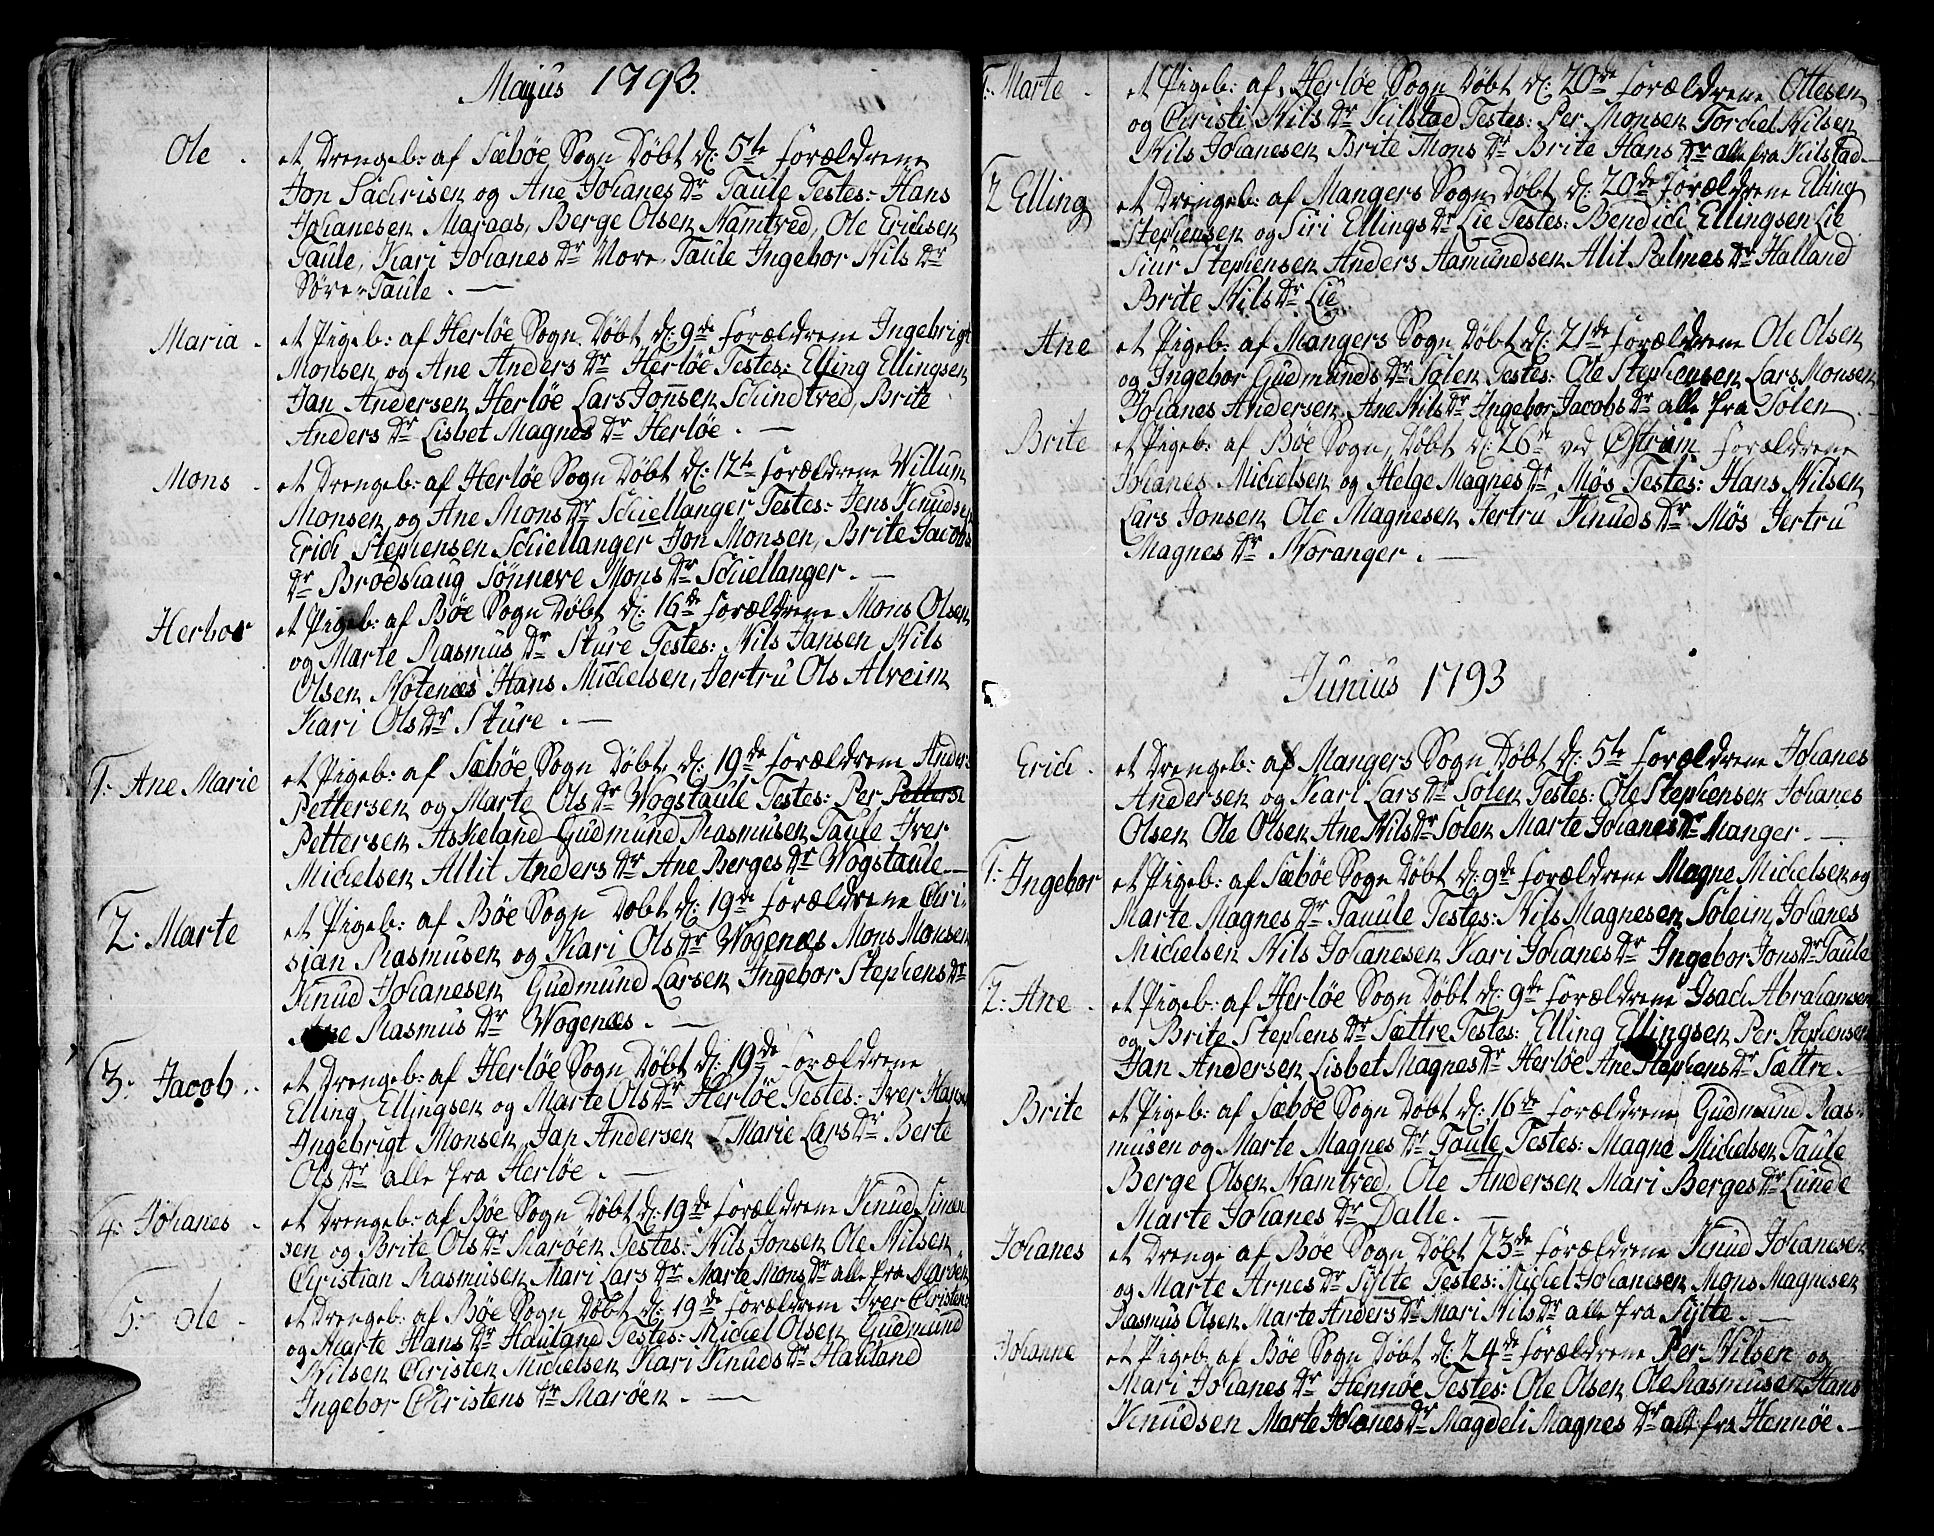 Majus 1793.
Ole . et Drengeb: af Sæbøe Sogn Døbt d: 5te forældrene
Jon Sachrisen og Ane Johanes Dr Taule Testes: Hans
Johanesen Maraas, Berge Olsen Namtved, Ole Erichsen
Taule, Kari Johanes Dr Nore Taule Ingebor Nils Dr
Søre Taule . —
Maria . et Pigeb: af Herløe Sogn Døbt d: 9de forældrene Ingebrigt
Monsen og Ane Anders Dr Herløe Testes: Elling Ellingsen
Jan Andersen Herløe Lars Jonsen Schindtved, Brite
Anders Dr Lisbet Magnes Dr Herløe . —
Mons . et Drengeb: af Herløe Sogn Døbt d: 12te forældrene Willum
Monsen og Ane Mons Dr Schiellanger Testes: Jens Knudsen
Erich Stephensen Schiellanger Jon Monsen, Brite Jacobs
Dr Brodshaug Sønneve Mons Dr Schiellanger . —
Herbor et Pigeb: af Bøe Sogn Døbt d: 16de forældrene Mons Olsen
og Marte Rasmus Dr Sture Testes: Nils Jansen Nils
Olsen Nøtenæs Hans Michelsen, Jertru Ols Alveim
Kari Ols Dr Sture . —
1: Ane Marie et Pigeb: af Sæbøe Sogn Døbt d: 19de forældrene Anders
Pettersen og Marte Ols Dr Wogstaule Testes: Per Petters
Pettersen Askeland Gudmund Rasmusen Taule Iver
Michelsen Allit Anders Dr Ane Berges Dr Wogstaule. —
2: Marte et Pigeb: af Bøe Sogn Døbt d: 19de forældrene Chri-
stian Rasmusen og Kari Ols Dr Wogenæs Mons Monsen
Knud Johanesen Gudmund Larsen Ingebor Stephens Dr
Ane Rasmus Dr Wogenæs . —
3: Jacob . et Drengeb: af Herløe Sogn Døbt d: 19de forældrene
Elling Ellingsen og Marte Ols Dr Herløe Testes: Iver Hansen
Ingebrigt Monsen, Jan Andersen Marie Lars Dr Berte
Ols Dr alle fra Herløe . —
4: Johanes . et Drengeb: af Bøe Sogn Døbt d: 19de forældrene Knud Simen
sen og Brite Ols Dr Marøen Testes: Nils Jonsen Ole Nilsen
Christian Rasmusen Mari Lars Dr Marte Mons Dr alle fra Marøen
5: Ole . et Drengeb: af Bøe Sogn Døbt d: 19de forældrene Iver Christens
og Marte Hans Dr Hauland Testes: Michel Olsen Gudmund
Nilsen Christen Michelsen Kari Knuds Dr Hauland
Ingebor Christens Dr Marøen . —
1: Marte . et Pigeb: af Herløe Sogn Døbt d: 20de forældrene Ottesen
og Christi Nils Dr Kilstad Testes: Per Monsen Torchel Nilsen
Nils Johanesen Brite Mons Dr Brite Hans Dr alle fra Kilstad —
2 Elling et Drengeb: af Mangers Sogn Døbt d: 20de forældrene Elling
Stephensen og Siri Ellings Dr Lie Testes: Bendich Ellingsen Lie
Siur Stephensen Anders Aamundsen Alit Palmes Dr Halland
Brite Nils Dr Lie
Ane et Pigeb: af Mangers Sogn Døbt d: 21de forældrene Ole Olsen
og Ingebor Gudmunds Dr Solen Testes: Ole Stephensen Lars Monsen
Johanes Andersen Ane Nils Dr Ingebor Jacobs Dr alle fra Solen .
Brite et Pigeb: af Bøe Sogn, Døbt d: 26de ved Østrim forældrene
Johanes Michelsen og Helge Magnes Dr Møs Testes: Hans Nilsen
Lars Jonsen Ole Magnesen Jertru Knuds Dr Møs Jertru
Magnes Dr Noranger . —
Junius 1793
Erich . et Drengeb: af Mangers Sogn Døbt d: 5te forældrene Johanes
Andersen og Kari Lars Dr Solen Testes: Ole Stephensen Johanes
Olsen Ole Olsen Ane Nils Dr Solen Marte Johanes Dr Manger . —
1: Ingebor et Pigeb: af Sæbøe Sogn Døbt d: 9de forældrene Magne Michelsen og
Marte Magnes Dr Tauule Testes: Nils Magnesen Soleim, Johanes
Michelsen Nils Johanesen Kari Johanes Dr Ingebor Jons Dr Taule
2: Ane . et Pigeb: af Herløe Sogn Døbt d: 9de forældrene Isach Abrahamsen
og Brite Stephens Dr Sættre Testes: Elling Ellingsen Per Stephensen
Jan Andersen Lisbet Magnes Dr Herløe Ane Stephens Dr Sættre . —
Brite et Pigeb: af Sæbøe Sogn Døbt d: 16de forældrene Gudmund Ras-
musen og Marte Magnes Dr Taule Testes: Magne Michelsen Taule
Berge Olsen Namtved, Ole Andersen Mari Berges Dr Lunde
Marte Johanes Dr Dalle . —
Johanes et Drenge af Bøe Sogn Døbt 23de forældrene Knud Johanesen
og Marte Arnes Dr Sylte Testes: Michel Johanesen Mons Magnesen
Rasmus Olsen Marte Anders Dr Mari Nils Dr alle fra Sylte . —
Johanne et Pigeb af Bøe Sogn Døbt d: 24de forældrene Per Nilsen og
Mari Johanes Dr Hennøe Testes: Ole Olsen Ole Rasmusen Hans
Knudsen Marte Johanes Dr Magdeli Magnes Dr alle fra Hennøe . —